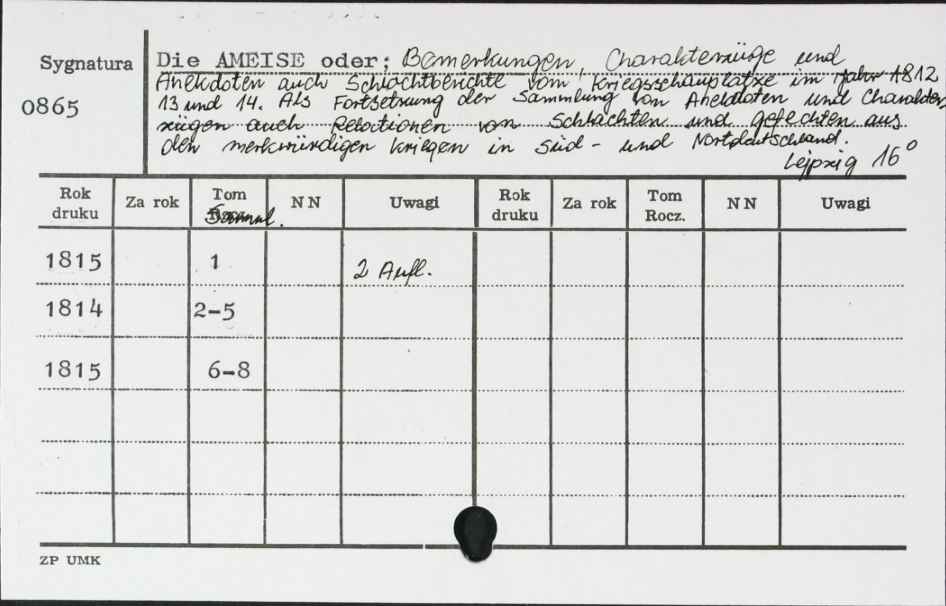 Sygnatura
0865
Die AMEISE oder; Bemerkungen, Charakterzüge und
Anekdoten auch Schlachtberichte vom Kriegsschauplatze im Jahr 1812
13 und 14. Als Fortsetzung der Sammlung von Anekdoten und Charakter
zügen auch Relationen von Schlachten und Gefechten aus
den merkwürdigen Kriegen in Süd- und Nortdeutschland.
Leipzig 16°
Rok druku Za rok Tom NN Uwagi Rok druku Za rok Tom Rocz. NN Uwagi
1815 1 2 Aufl.
1814 2-5
1815 6-8
ZP UMK